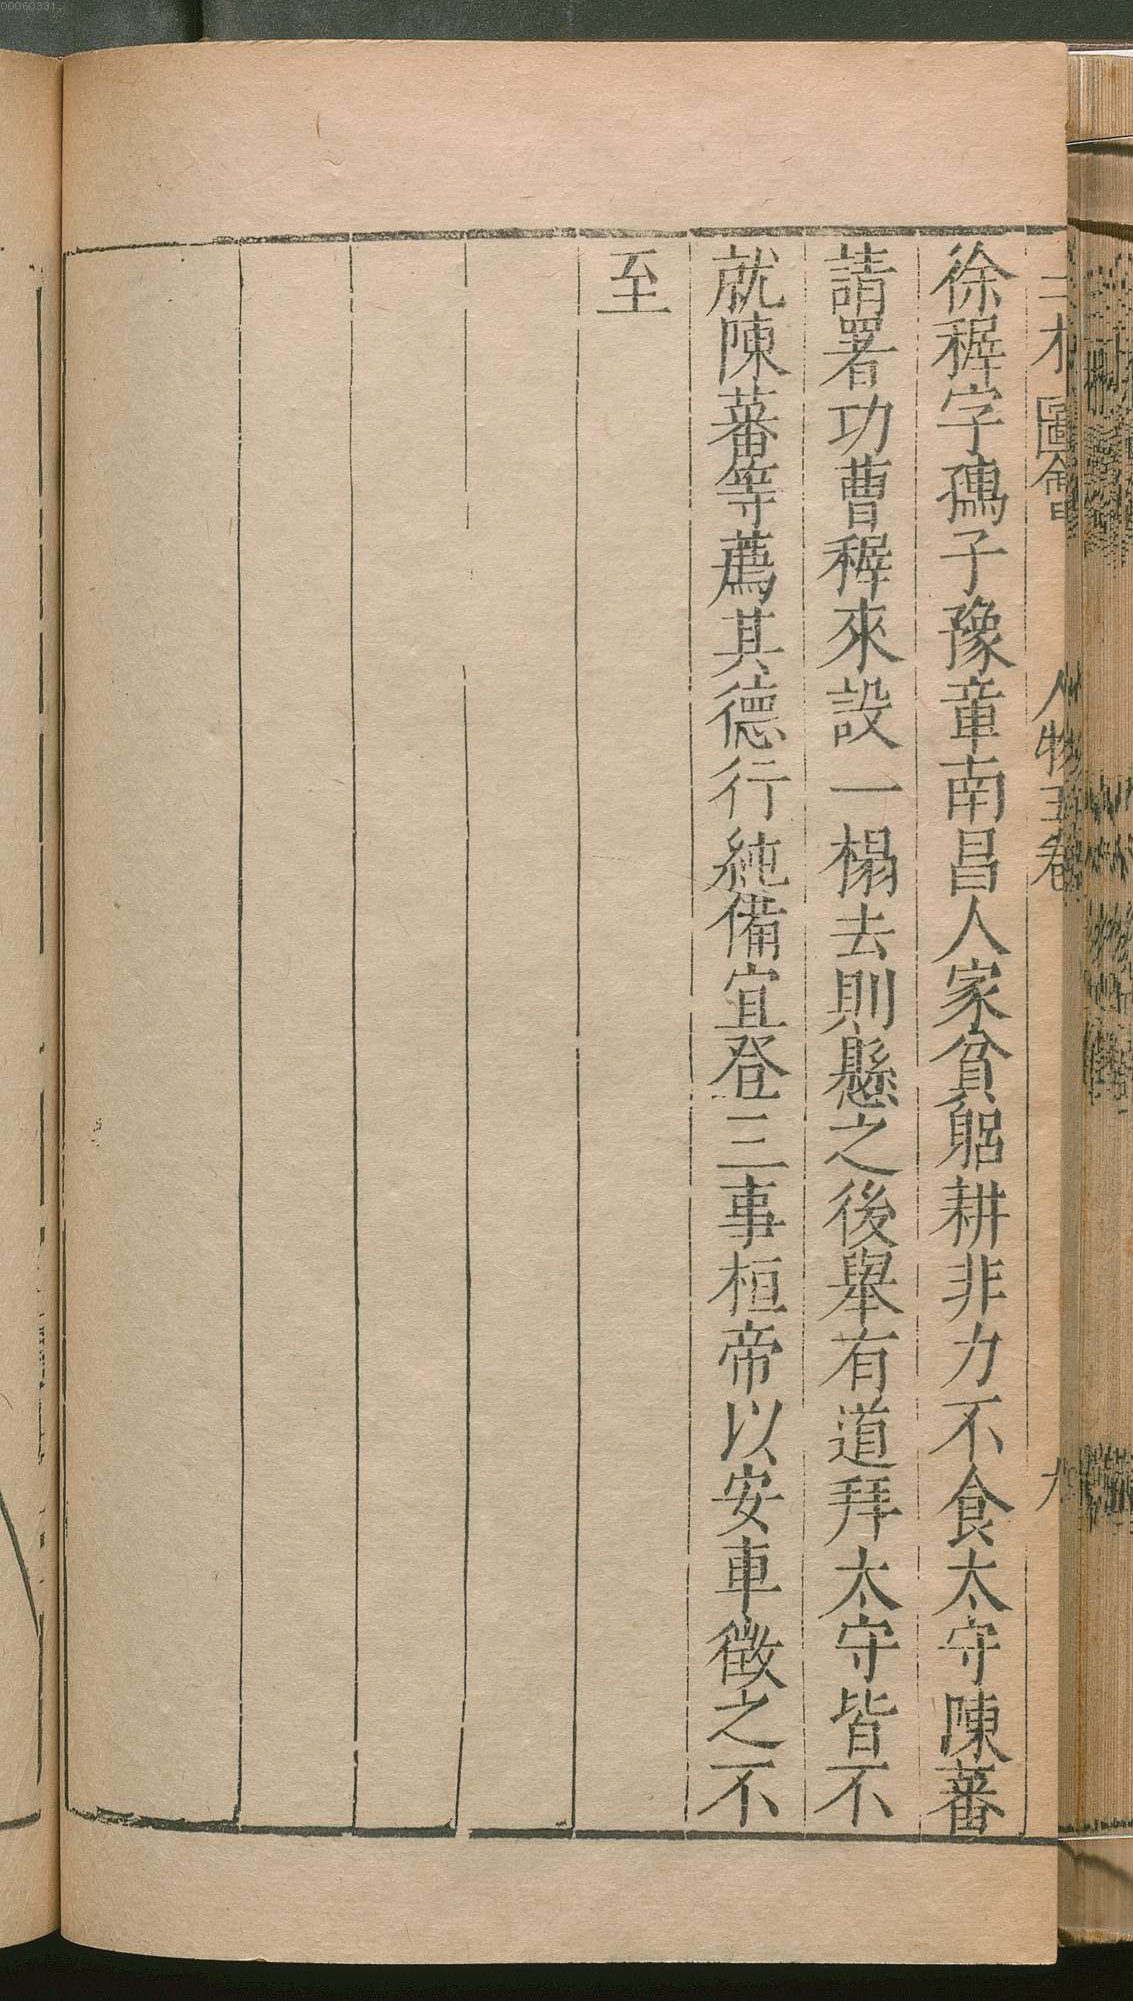 三才圖會 人物五卷 九
徐穉字孺子豫章南昌人家貧躬耕非力不食太守陳蕃
請署功曹穉來設一榻去則懸之後舉有道拜太守皆不
就陳蕃等薦其德行純備宜登三事桓帝以安車徵之不
至
00060331